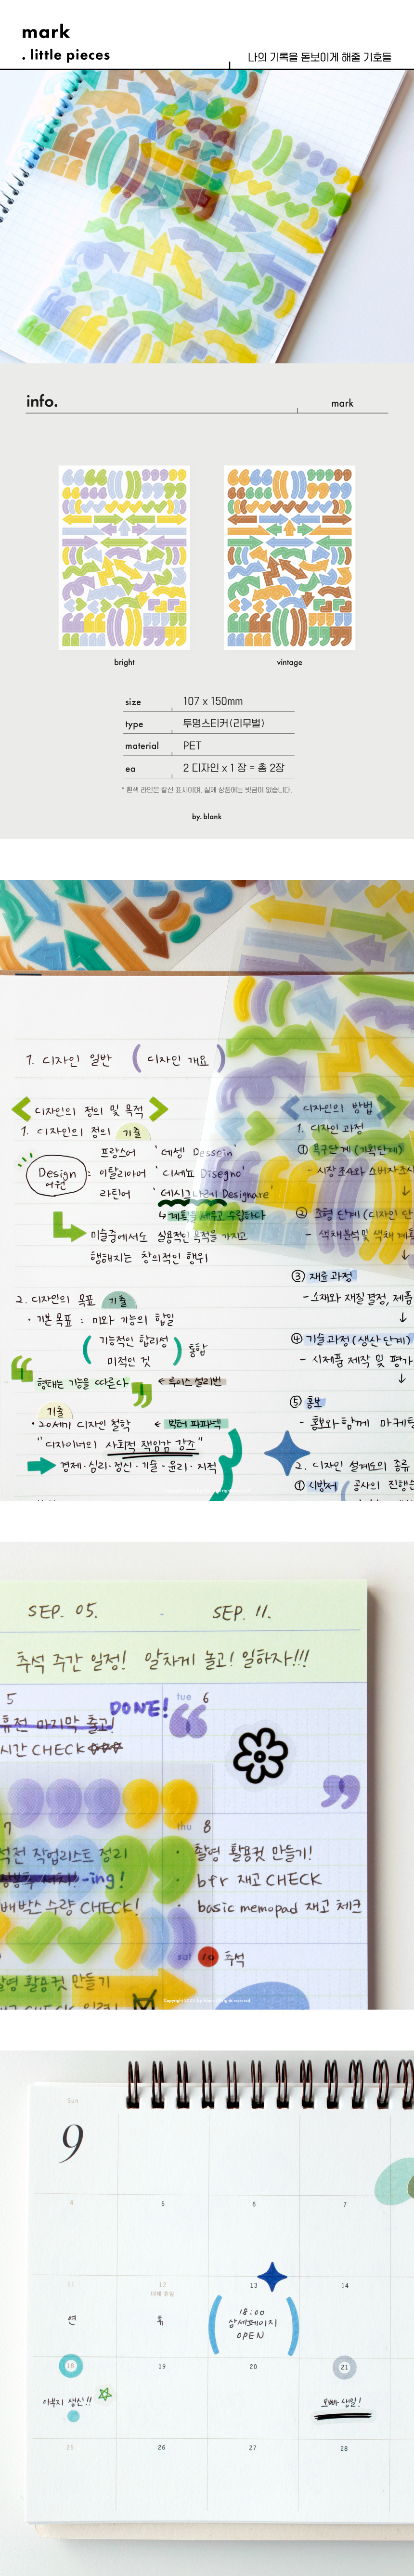 mark
. little pieces
나의 기록을 돋보이게 해줄 기호들
info.
mark
bright
vintage
size 107 x 150mm
type 투명스티커(리무벌)
material PET
ea 2 디자인 x 1 장 = 총 2장
* 흰색 라인은 칼선 표시이며, 실제 상품에는 빗금이 없습니다.
by. blank
1. 디자인 일반 ( 디자인 개요 )
디자인의 정의 및 목적
1. 디자인의 정의 기출
Design 어원 : 프랑스어 '데셍 Dessein'
이탈리아어 '디세뇨 Disegno'
라틴어 '데시그나레 Designare'
↳ 계획을 세우고 수립하다
미술중에서도 실용적인 목적을 가지고
행해지는 창의적인 행위
2. 디자인의 목표 기출
· 기본 목표 : 미와 기능의 합일
( 기능적인 합리성
미적인 것 ) 통합
형태는 기능을 따른다 - 루이스 설리번
기출
· 20세기 디자인 철학 - 빅터 파파넥
" 디자이너의 사회적 책임감 강조 "
경제 · 심리 · 정신 · 기술 · 윤리 · 지적
디자인의 방법
1. 디자인 과정
① 욕구단계 (계획단계)
- 시장조사와 소비자조사
↓
② 조형 단계 (디자인 단
- 색채분석및 색채 계획
↓
③ 재료 과정
- 소재와 재질 결정, 제품
↓
④ 기술과정 (생산 단계)
- 시제품 제작 및 평가
↓
⑤ 홍보
- 홍보와 함께 마케팅
2. 디자인 설계도의 종류
① 시방서 ( 공사의 진행순
SEP. 05. - SEP. 11.
추석 주간 일정! 알차게 놀고! 일하자!!!
5
휴전 마지막 출고! DONE!
시간 CHECK
tue 6
7
석전 작업리스트 정리
-ing!
수량 CHECK!
활영 활용컷 만들기
thu 8
· 촬영 활용컷 만들기!
· bfr 재고 CHECK
· basic memopad 재고 체크
sat 10 추석
Copyright 2022. by. blank All rights reserved.
Sun
9
4 5 6 7
11 12 13 14
대체 휴일
연 휴
18:00
상세페이지
OPEN
18 19 20 21
아부지 생신!!
오빠 생일!
25 26 27 28